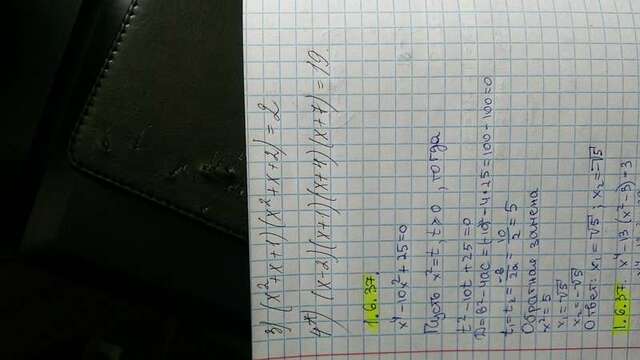 3) (x²+x+1)(x²+x+2)=2
4*) (x-2)(x+1)(x+4)(x+7)=19.
1.6.37.
x⁴-10x²+25=0
Пусть x²=t, t>0, тогда
t²-10t+25=0
D=в²-4ac=(-10)²-4·25=100-100=0
t₁=t₂=-в/2a=10/2=5
Обратная замена
x²=5
x₁=√5
x₂=-√5
Ответ: x₁=√5; x₂=-√5
1.6.37. x⁴-13(x²-3)=3